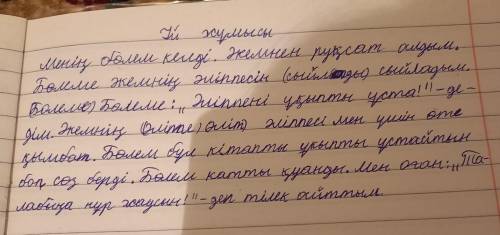 Үй жұмысы
Менің бөлем келді. Әкемнен рұқсат алдым.
Бөлеме әкемнің әліппесін (сыйлады) сыйладым.
(Бөлеме) Бөлеме: „Әліппені ұқыпты ұста!"-де-
дім. Әкемнің (әліппе) әліп) әліппесі мен үшін өте
қымбат. Бөлем бұл кітапты ұқыпты ұстайтын
боп сөз берді. Бөлем қатты қуанды. Мен оған: „Та-
лабыңа нұр жаусын!"-деп тілек айттым.